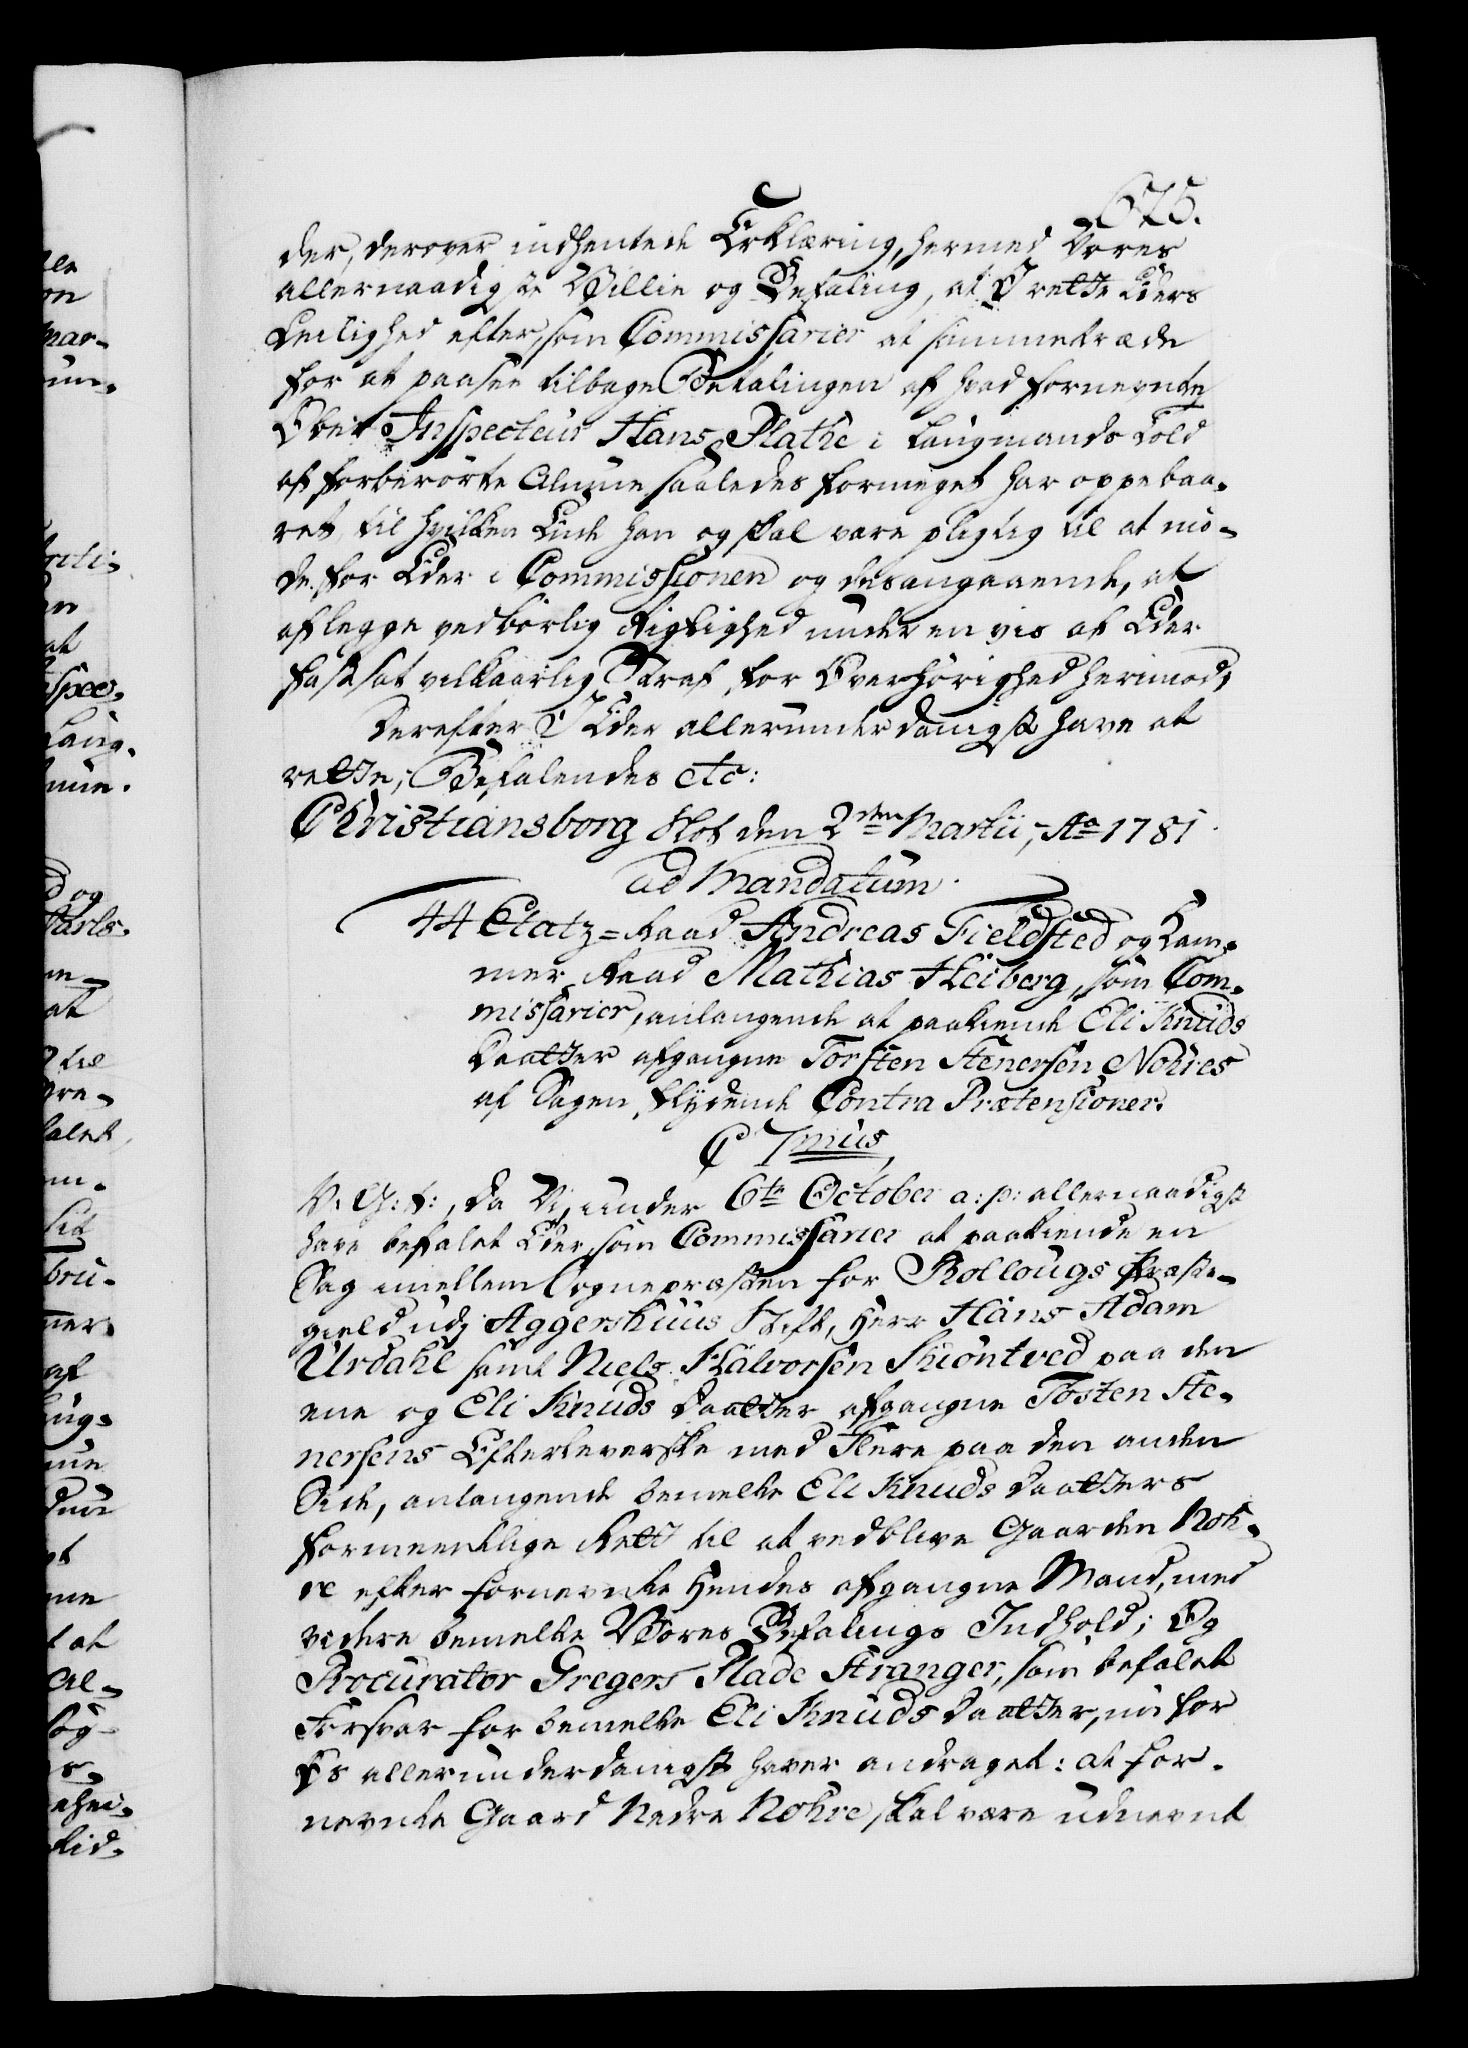 675.
der, derover indhentede Erklæring, hermed Vores
allernaadigste Villie og Befaling, at I rette Eders
Leilighed efter, som Commissarier at sammetræde
for at paasee tilbage Betalingen af hvad fornevnte
Ober Inspecteur Hans Plathe i Laugmands Told
af forberörte Almue saaledes formeget har oppebaa-
ret, til hvilken Ende han og skal være pligtig til at mö-
de for Eder i Commissionen og desangaaende, at
aflegge vedbörlig Rigtighed under en vis af Eder
fastsat vilkaarlig Straf for Overhörighed herimod,
Derefter I Eder allerunderdanigst have at
rette, Befalendes etc:
Christiansborg Slot den 2den Martii, Ao 1781
ad Mandatum.
44 Etatz-Raad Andreas Fieldsted og Kam-
mer Raad Mathias Heiberg, som Com-
missarier, anlangende at paakiende Eli Knuds
Daatter afgangne Torsten Stenersen Nohres
af Sagen flydende Contra Prætensioner.
C 7mus,
V. G: T:, Da Vi, under 6te October a: p: allernaadigst
have befalet Eder, som Commissarier at paakiende en
Sag imellem Sognepræsten for Rollougs Præste-
gield udj Aggershuus Stift, Herr Hans Adam
Urdahl samt Niels Halvorsen Skiöntved paa den
ene og Eli Knuds Daatter afgangne Tosten Ste-
nersens Efterleverske med Flere paa den anden
Side, anlangende bemelte Eli Knuds Daatters
formeentlige Rett til at vedblive Gaarden Noh-
re efter fornevnte Hendes afgangne Mand, med
videre bemelte Vores Befalings Indhold; Og
Procurator Gregers Plade Stranger, som befalet
Forsvar for bemelte Eli Knuds Daatter, nu for
Os allerunderdanigst haver andraget: at for-
nevnte Gaard Nedre Nohre, skal være udnevnt